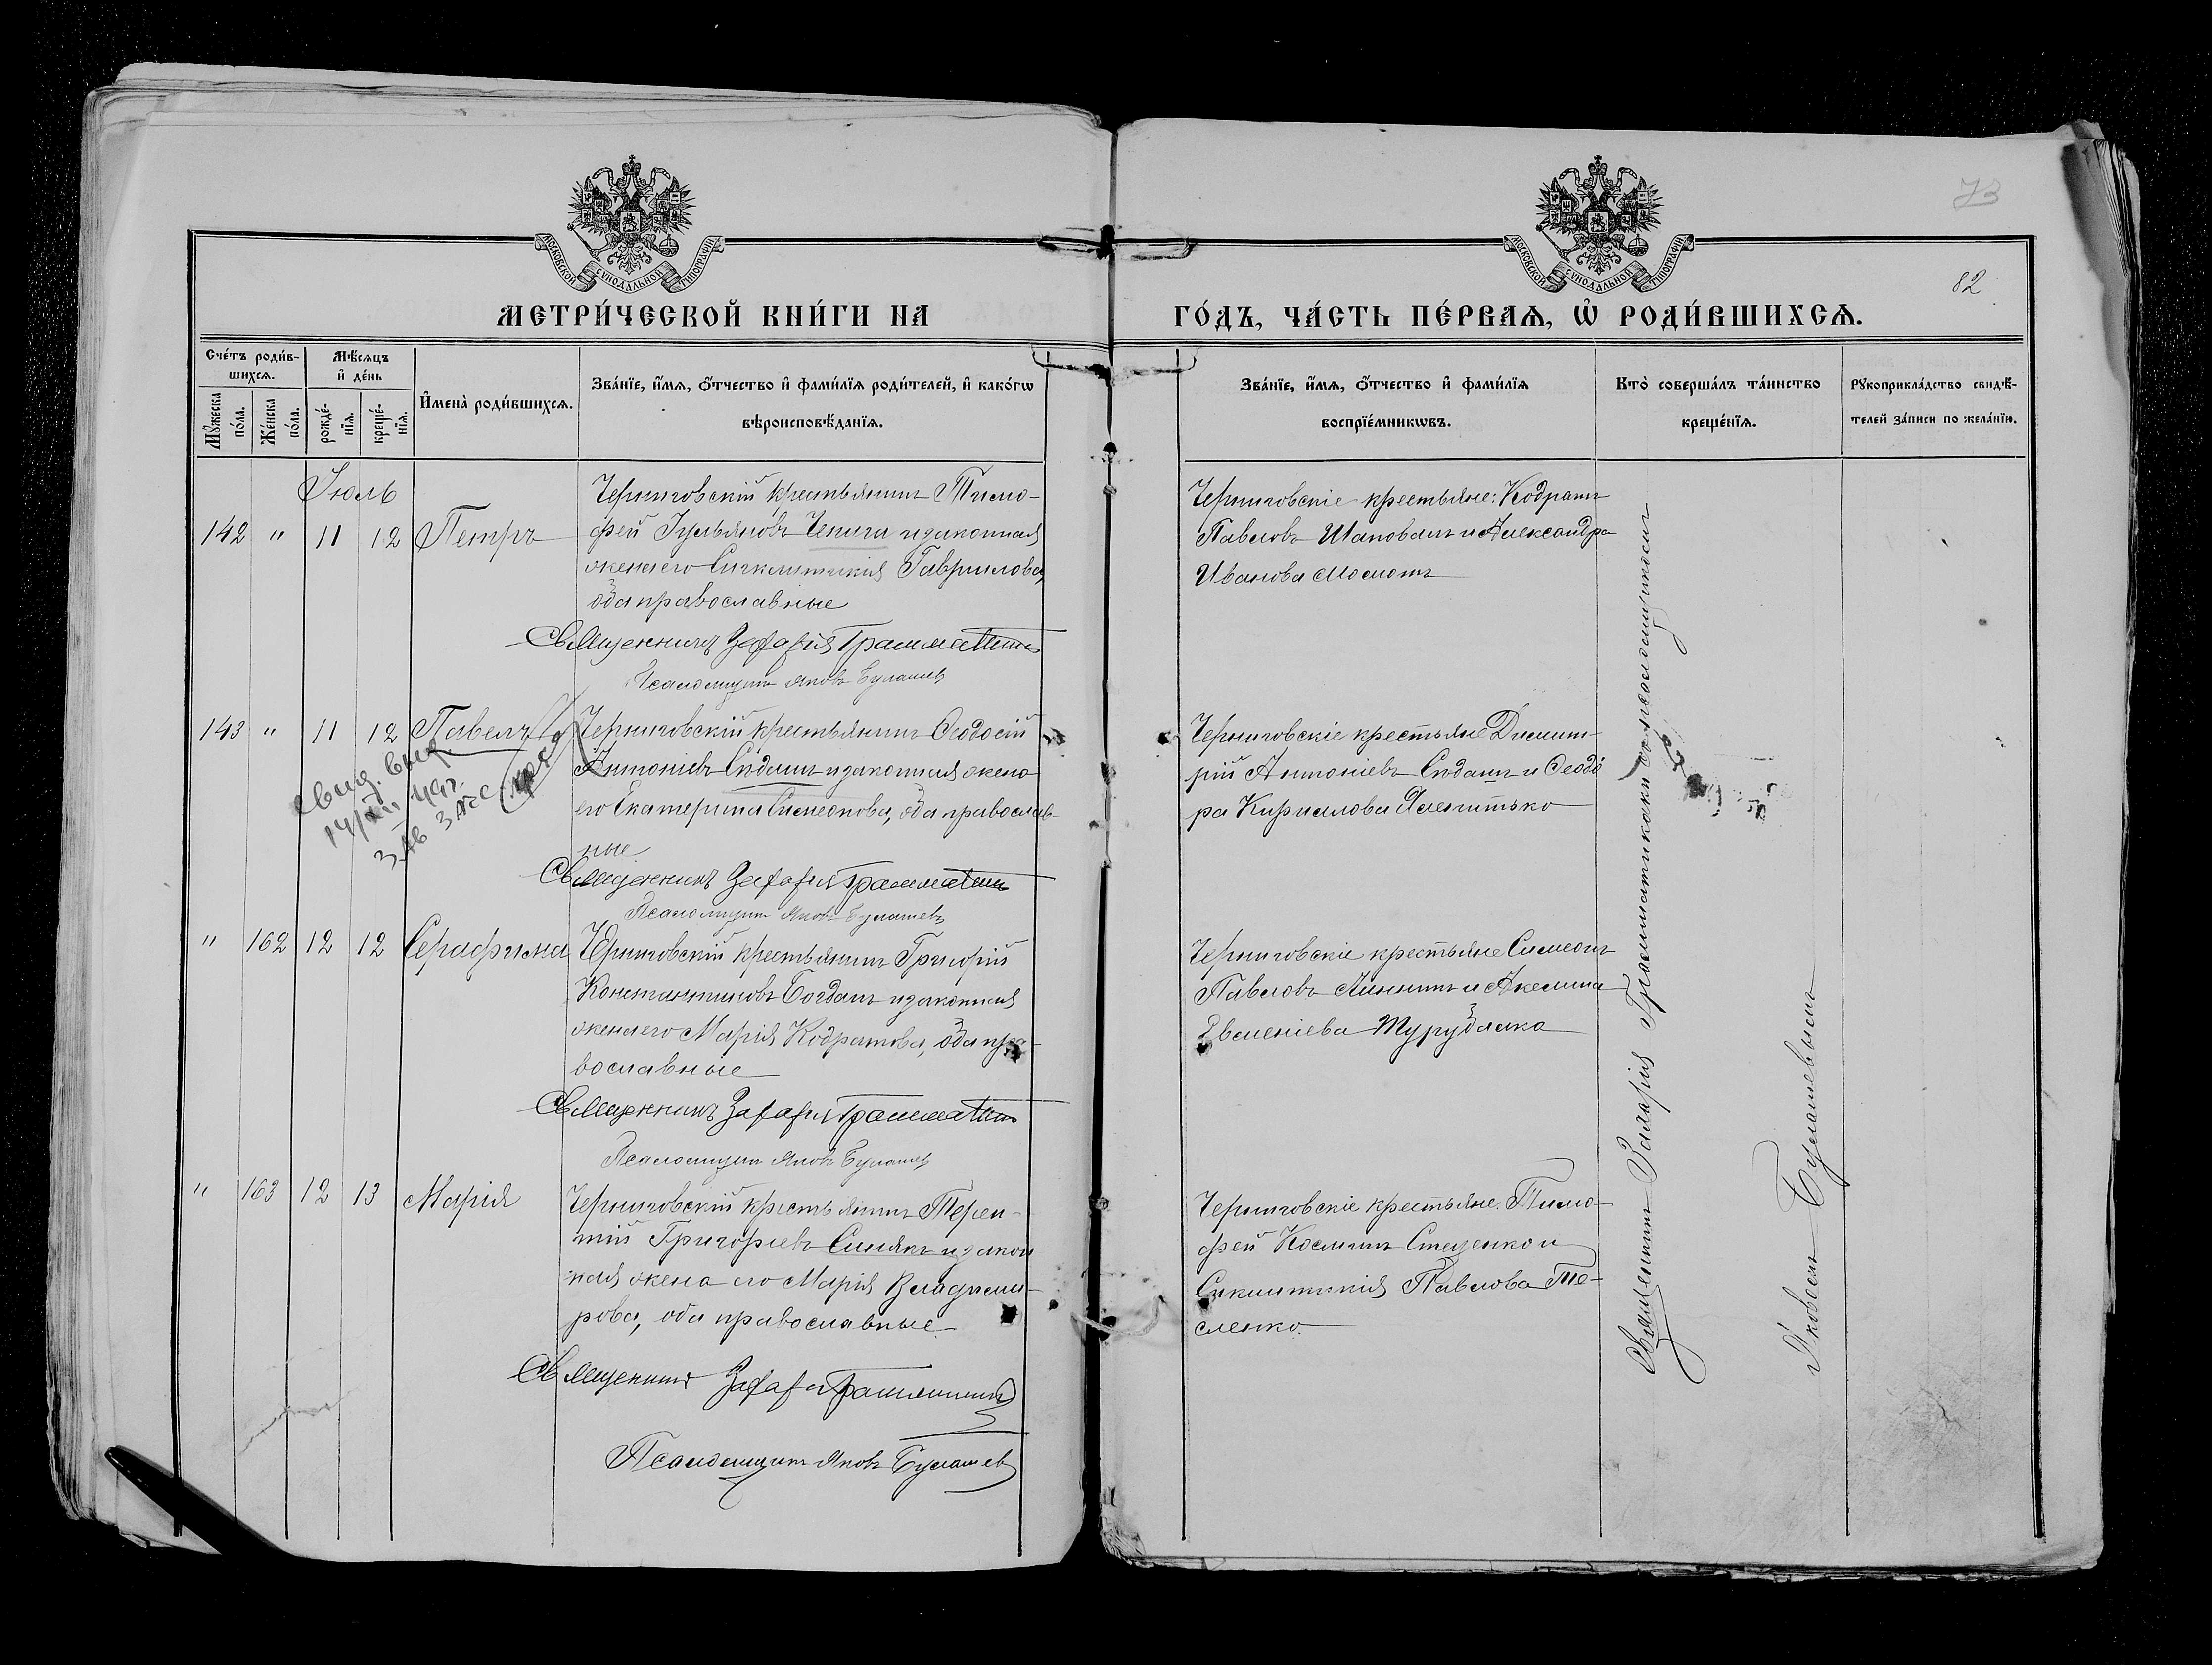 73
82
МОСКОВСКОЙ СѴНОДАЛЬНОЙ ТИПОГРАФІИ
МОСКОВСКОЙ СѴНОДАЛЬНОЙ ТИПОГРАФІИ
МЕТРИ́ЧЕСКОЙ КНИ́ГИ НА
ГО́ДЪ, ЧА́СТЬ ПЕ́РВАѦ, Ѡ҆ РОДИ́ВШИХСѦ.
Сче́тъ роди́в-
шихсѧ.
Мꙋ́жеска по́ла.
Же́нска по́ла.
Мѣ́сѧцъ
и҆ де́нь
рожде́-
нїѧ.
креще́-
нїѧ.
И҆мена̀ роди́вшихсѧ.
Зва́нїе, и҆́мѧ, ѻ҆́тчество и҆ фами́лїѧ роди́телей, и҆ како́гѡ
вѣроисповѣ́данїѧ.
Зва́нїе, и҆́мѧ, ѻ҆́тчество и҆ фами́лїѧ
воспрїе́мникѡвъ.
Кто̀ соверша́лъ та́инство
креще́нїѧ.
Рꙋкоприкла́дство свидѣ́-
телей за́писи по жела́нїю.
Іюль
142 " 11 12 Петръ
Черниговскій крестьянинъ Тимо-
фей Іульяновъ Чепига и законная
жена его Сигклитикія Гаврилова,
оба православные
Священникъ Захарія Грамматикъ
Псаломщик Яковъ Булашев
Черниговскіе крестьяне: Кодратъ
Павловъ Шаповалъ и Александра
Иванова
143 " 11 12 Павелъ
Черниговскій крестьянинъ Ѳеодосій
Антоніевъ Сидашъ и законная жена
его Екатерина Симеонова, оба православ-
ные
Священникъ Захарія Грамматикъ
Псаломщикъ Яковъ Булашевъ
Черниговскіе крестьяне Димит-
рій Антоніевъ Сидашъ и Ѳеодо
ра Кириллова
свид. выд.
ЗАВ ЗАГС
" 162 12 12 Серафима
Черниговскій крестьянинъ Григорій
Константиновъ Богданъ и законная
жена его Марія Кодратова, оба пра-
вославные
Священникъ Захарія Грамматикъ
Псаломщик Яковъ Булашев
Черниговскіе крестьяне Симеонъ
Павловъ и Акелина
Евменіева
" 163 12 13 Марія
Черниговскій крестьянинъ Терен-
тій Григоріевъ Синякъ и закон
ная жена его Марія Владими-
рова, оба православные
Священникъ Захарія Грамматикъ
Псаломщикъ Яковъ Булашев
Черниговскіе крестьяне: Тимо-
фей Космин Стеценко и
Сикклитикія Павлова Те-
сленко.
Священникъ Захарія Грамматикаки съ псаломщикомъ
Яковомъ Булашевымъ